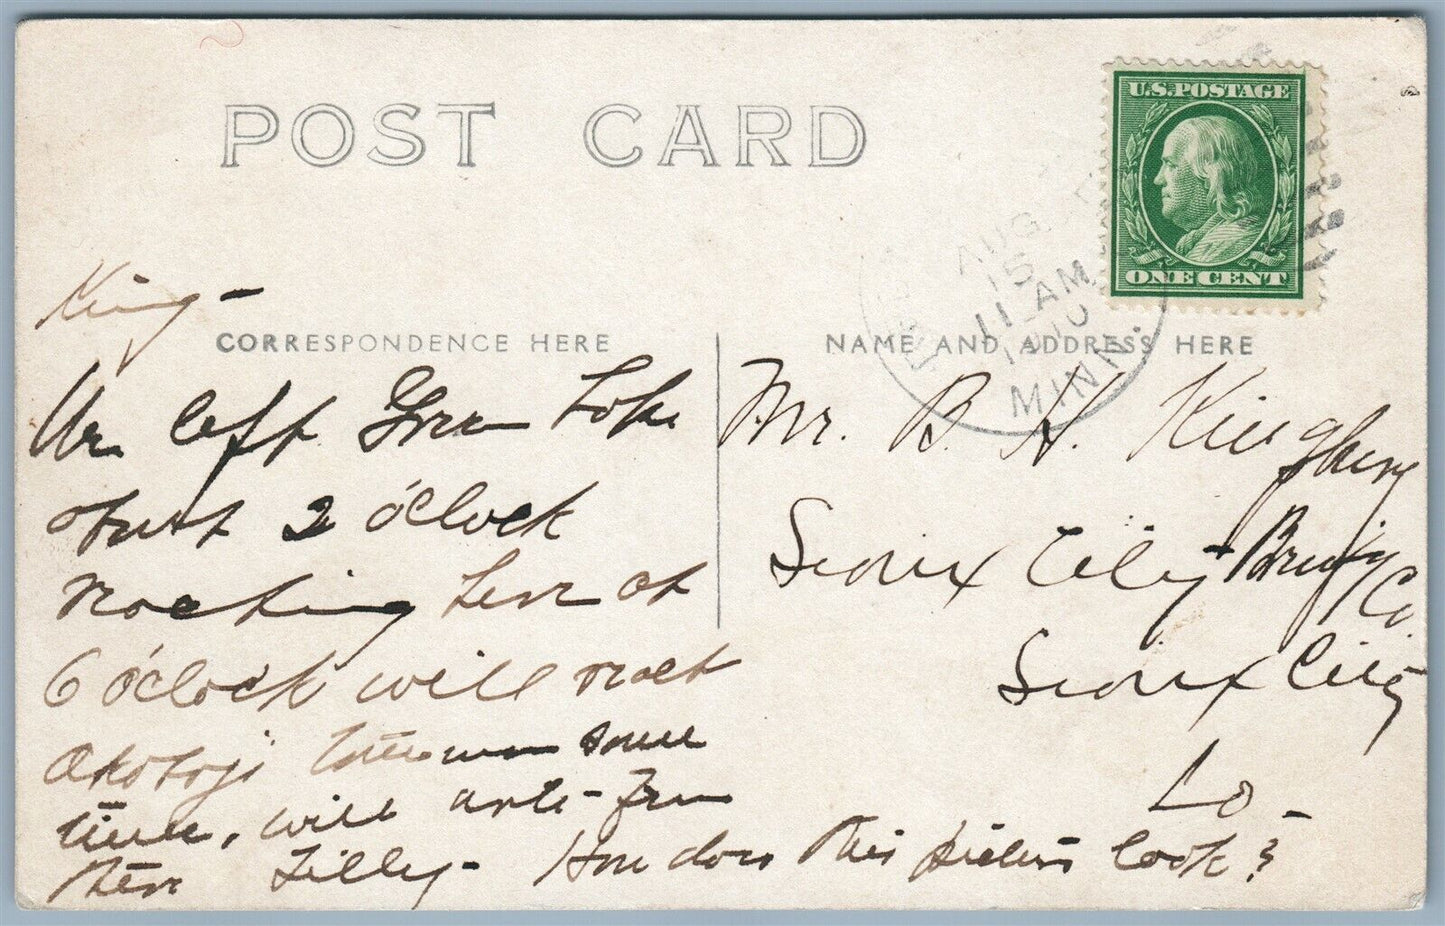 POST CARD
U.S.POSTAGE
ONE CENT
AUG
15
11 AM
1910
MINN.
King-
CORRESPONDENCE HERE
NAME AND ADDRESS HERE
We left Green Lake
about 2 o'clock
reaching here at
6 o'clock will reach
Okoboji some
time, will write from
there Lilly- How does this picture look?
Mr. B. H. Kingsbury
Sioux City Co.
Sioux City
Io-